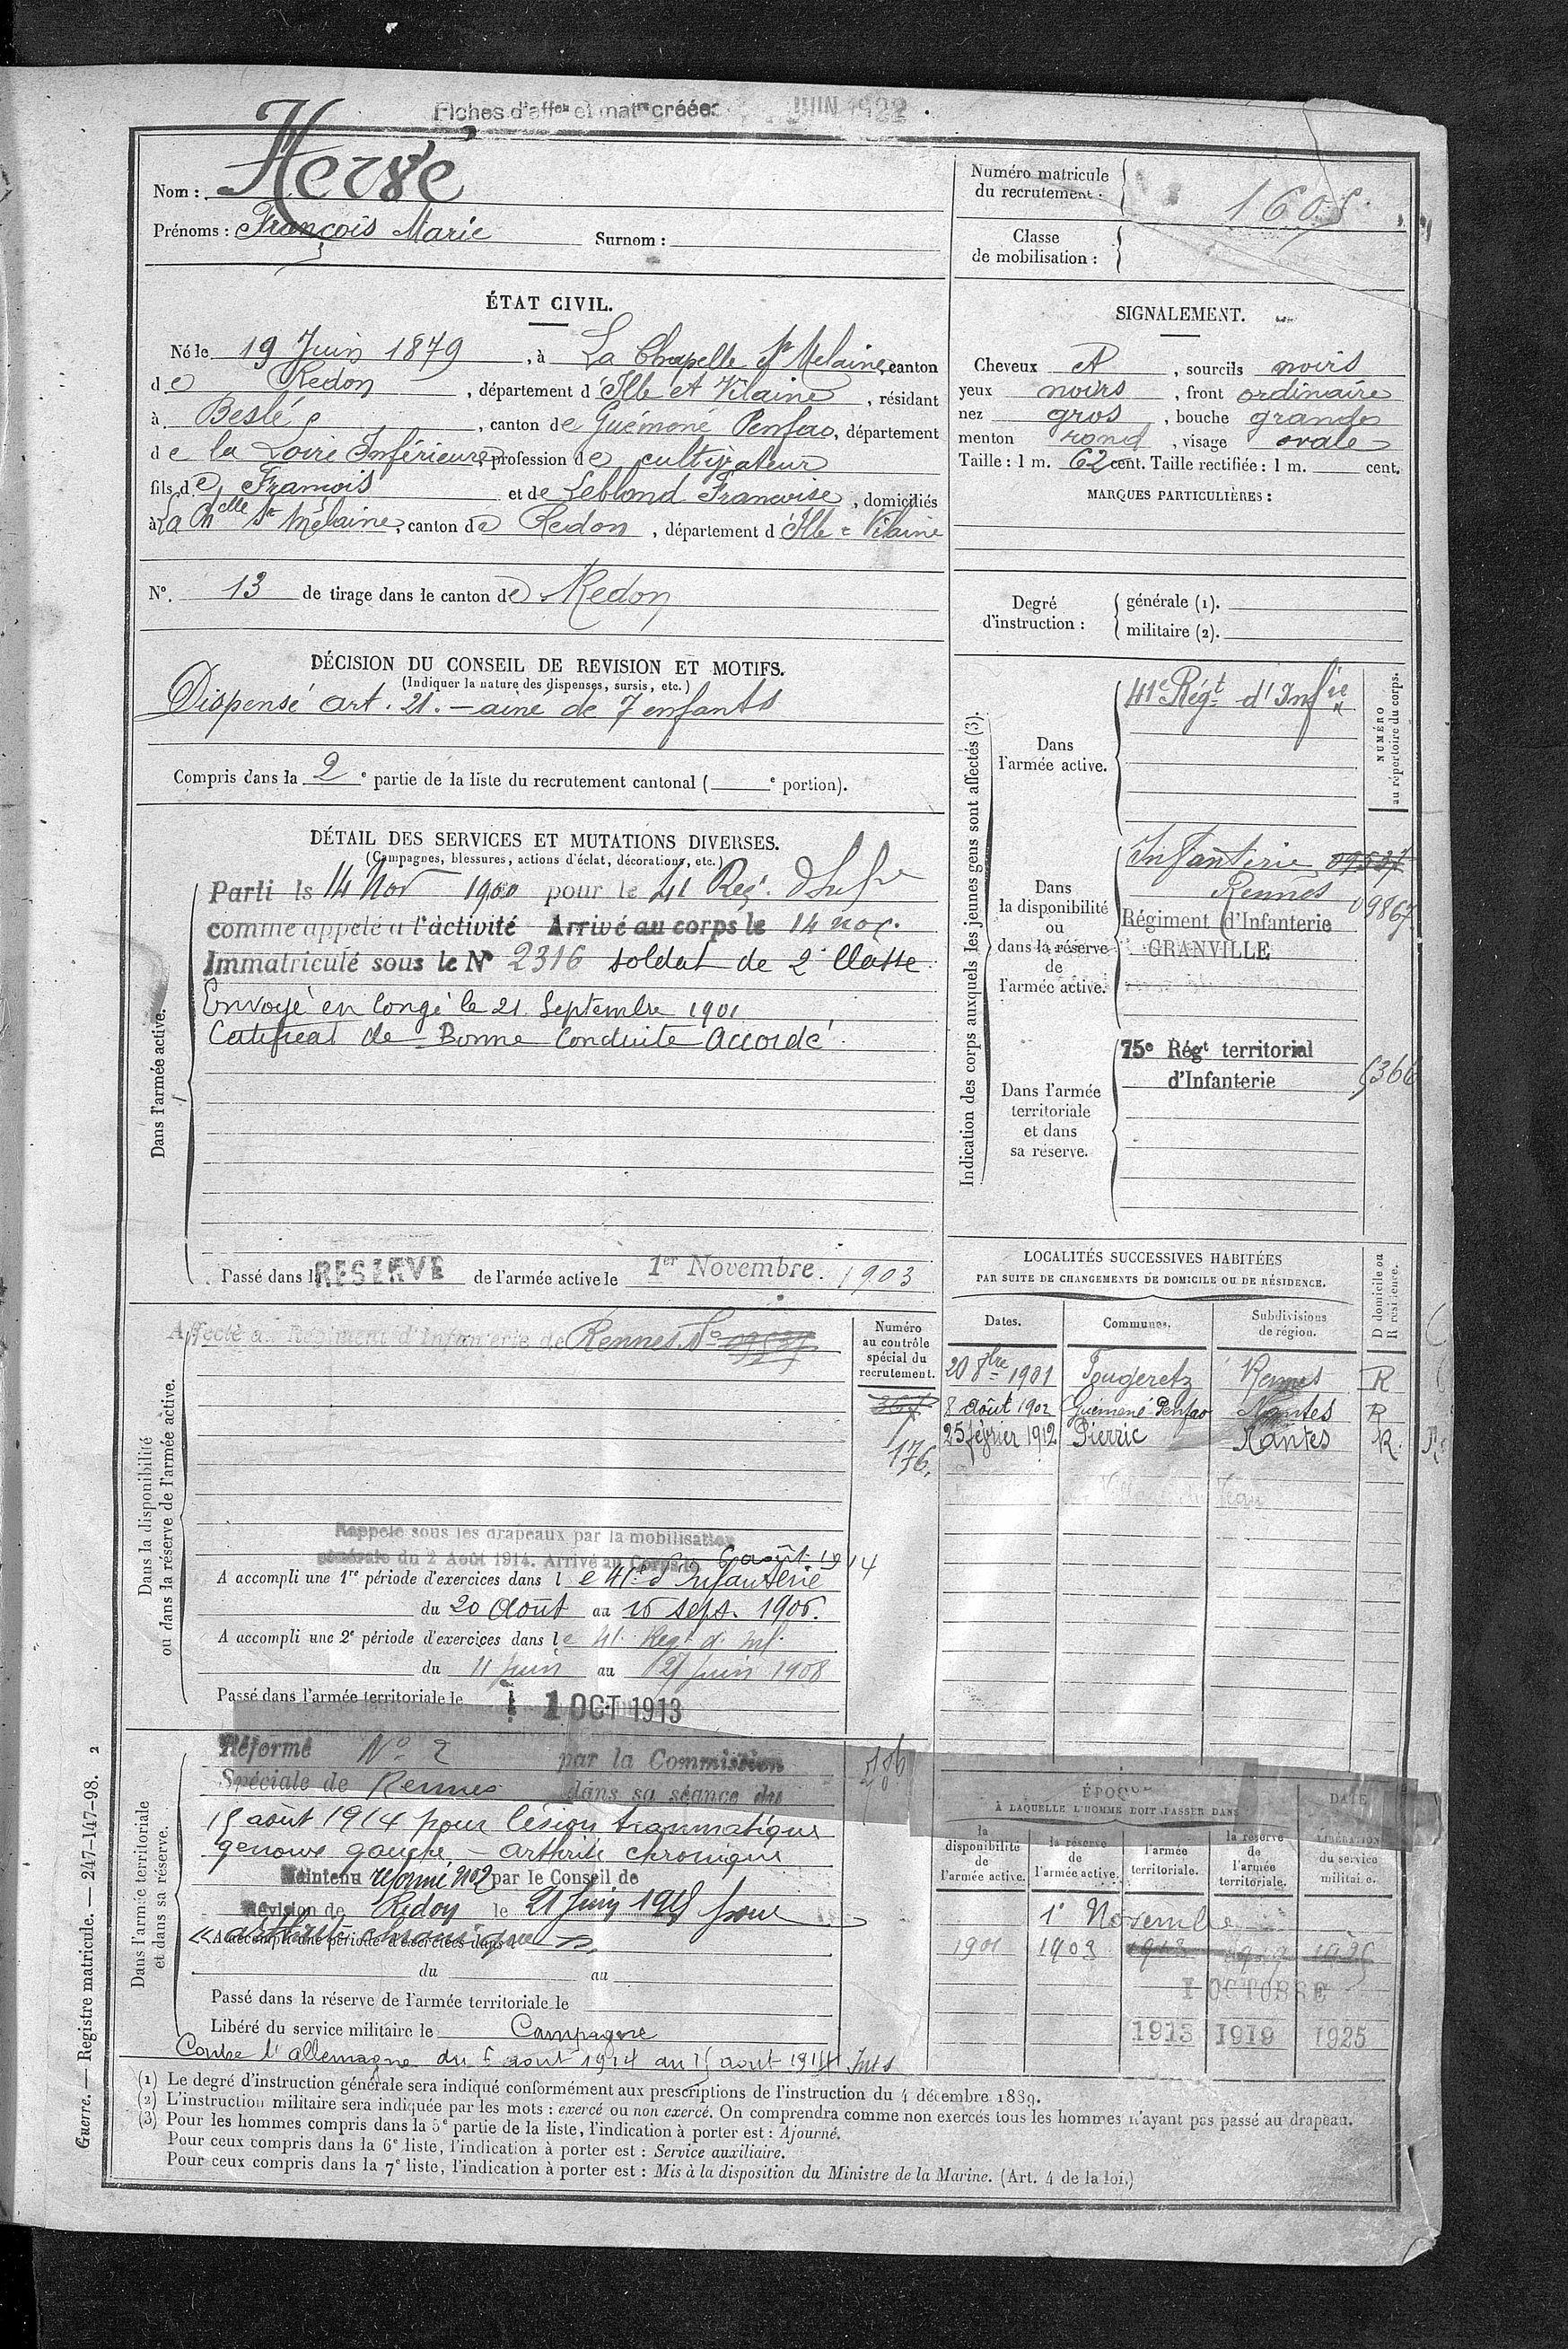 Fiches d'affon et matre créées JUIN 1922
Nom : Hervé
Prénoms : François Marie Surnom :
Numéro matricule
du recrutement : 1605
Classe
de mobilisation :
ÉTAT CIVIL.
Né le 19 Juin 1879, à La Chapelle St Melaine, canton
de Redon, département d'Ille et Vilaine, résidant
à Beslé, canton de Guémené Penfao, département
de la Loire Inférieure, profession de cultivateur
fils de François et de Leblond Françoise, domiciliés
à La Chelle St Mélaine, canton de Redon, département d'Ille & Vilaine
N°. 13 de tirage dans le canton de Redon
SIGNALEMENT.
Cheveux , sourcils noirs
yeux noirs, front ordinaire
nez gros, bouche grande
menton rond, visage ovale
Taille : 1 m. 62 cent. Taille rectifiée : 1 m. cent.
MARQUES PARTICULIÈRES :
Degré
d'instruction :
générale (1).
militaire (2).
DÉCISION DU CONSEIL DE REVISION ET MOTIFS.
(Indiquer la nature des dispenses, sursis, etc.)
Dispensé art. 21. – ainé de 7 enfants
Compris dans la 2e partie de la liste du recrutement cantonal ( e portion).
DÉTAIL DES SERVICES ET MUTATIONS DIVERSES.
(Campagnes, blessures, actions d'éclat, décorations, etc.)
Dans l'armée active.
Parti le 14 Nov 1900 pour le 41 Reg. d'Infie
comme appelé à l'activité Arrivé au corps le 14 nov.
Immatriculé sous le N° 2316 soldat de 2e Classe
Envoyé en Congé le 21 Septembre 1901
Certificat de Bonne Conduite Accordé
Passé dans la RÉSERVE de l'armée active le 1er Novembre. 1903
Indication des corps auxquels les jeunes gens sont affectés (3).
NUMÉRO
au répertoire du corps.
Dans
l'armée active.
41e Régt d'Infie
Dans
la disponibilité
ou
dans la réserve
de
l'armée active.
Infanterie 09537
Rennes 09867
Régiment d'Infanterie
GRANVILLE
Dans l'armée
territoriale
et dans
sa réserve.
75e Régt territorial
d'Infanterie
LOCALITÉS SUCCESSIVES HABITÉES
PAR SUITE DE CHANGEMENTS DE DOMICILE OU DE RÉSIDENCE.
Dates. Communes. Subdivisions de région. D domicile ou R résidence.
20 8bre 1901 Fougeretz Rennes R
8 août 1902 Guémené Penfao Nantes R
25 février 1912 Pierric Nantes R.
Dans la disponibilité
ou dans la réserve de l'armée active.
Numéro
au contrôle
spécial du
recrutement.
176.
Affecté au Régiment d'Infanterie de Rennes No 09537
Rappelé sous les drapeaux par la mobilisation
générale du 2 Août 1914. Arrivé au Corps le 6 août 1914
A accompli une 1re période d'exercices dans le 41e d'Infanterie
du 20 Août au 16 sept. 1906.
A accompli une 2e période d'exercices dans le 41. Regt d. Inf.
du 11 juin au 27 juin 1908
Passé dans l'armée territoriale le 1 OCT 1913
Dans l'armée territoriale
et dans sa réserve.
Réformé No 2 par la Commission
Spéciale de Rennes dans sa séance du
15 août 1914 pour lésion traumatique
genoux gauche – arthrite chronique
Maintenu réformé no2 par le Conseil de
Révision de Redon le 21 Juin 1915 pour
« arthrite chronique »
A accompli une période d'exercices dans
du au
Passé dans la réserve de l'armée territoriale le
Libéré du service militaire le
Campagne
Contre l'allemagne du 6 août 1914 au 15 aout 1914
ÉPOQUE
À LAQUELLE L'HOMME DOIT PASSER DANS
la disponibilité de l'armée active.
la réserve de l'armée active.
l'armée territoriale.
la réserve de l'armée territoriale.
DATE
LIBÉRATION
du service
militaire.
1er Novembre
1901 1903 1913 1919 1925
1 OCTOBRE
1913 1919 1925
(1) Le degré d'instruction générale sera indiqué conformément aux prescriptions de l'instruction du 4 décembre 1889.
(2) L'instruction militaire sera indiquée par les mots : exercé ou non exercé. On comprendra comme non exercés tous les hommes n'ayant pas passé au drapeau.
(3) Pour les hommes compris dans la 5e partie de la liste, l'indication à porter est : Ajourné.
Pour ceux compris dans la 6e liste, l'indication à porter est : Service auxiliaire.
Pour ceux compris dans la 7e liste, l'indication à porter est : Mis à la disposition du Ministre de la Marine. (Art. 4 de la loi.)
Guerre. — Registre matricule. — 247-147-98. 2